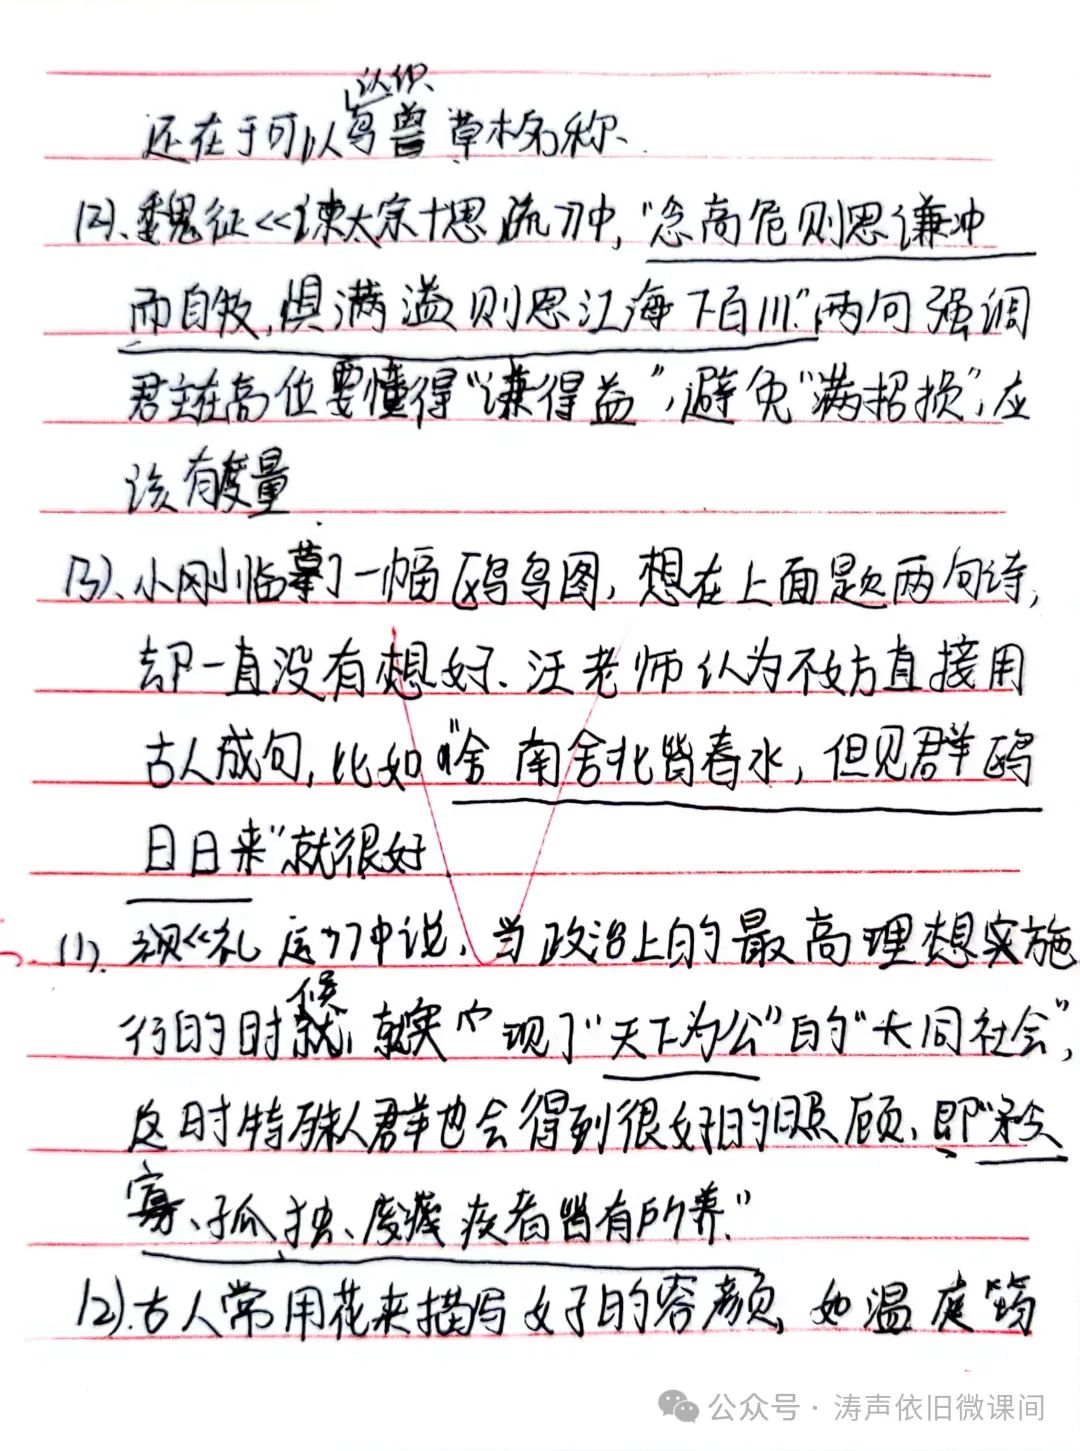 认识
还在于可以鸟兽草木名称、
(2)、魏征《谏太宗十思疏》中,"念高危则思谦冲
而自牧,惧满溢则思江海下百川",两句强调
君主在高位要懂得"谦得益",避免"满招损",应
该有度量
(3)、小刚临摹了一幅鸥鸟图,想在上面题两句诗,
却一直没有想好、汪老师认为不妨直接用
古人成句,比如"舍南舍北皆春水,但见群鸥
日日来"就很好
(1)、《礼运》中说,当政治上的最高理想实施
候
行的时就,就实现了"天下为公"的"大同社会",
这时特殊人群也会得到很好的照顾、即"矜
寡、孤独、废疾者皆有所养."
(2).古人常用花来描写女子的容颜,如温庭筠
公众号·涛声依旧微课间